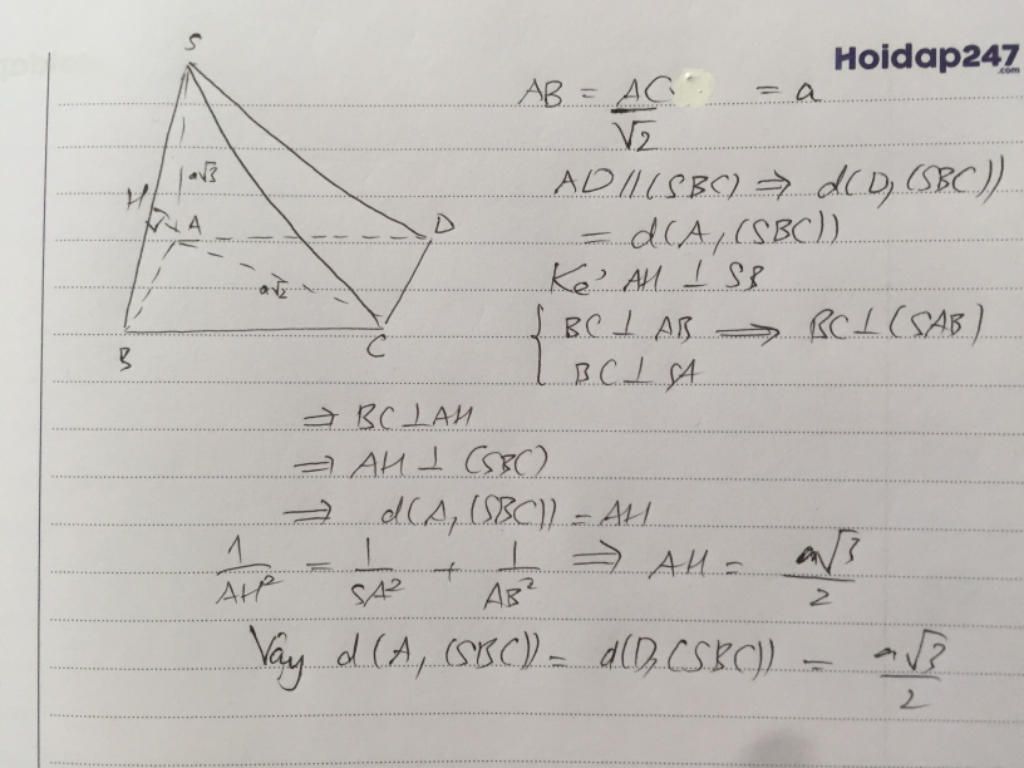 Hoidap247
.com
S
AB = AC/√2 = a
a√3
AD // (SBC) ⇒ d(D, (SBC))
H
A
D
= d(A, (SBC))
Kẻ AH ⊥ SB
a√2
BC ⊥ AB ⟹ BC ⊥ (SAB)
B
C
BC ⊥ SA
⇒ BC ⊥ AH
⇒ AH ⊥ (SBC)
⇒ d(A, (SBC)) = AH
1/AH² = 1/SA² + 1/AB² ⇒ AH = a√3/2
Vậy d(A, (SBC)) = d(D, (SBC)) = a√3/2